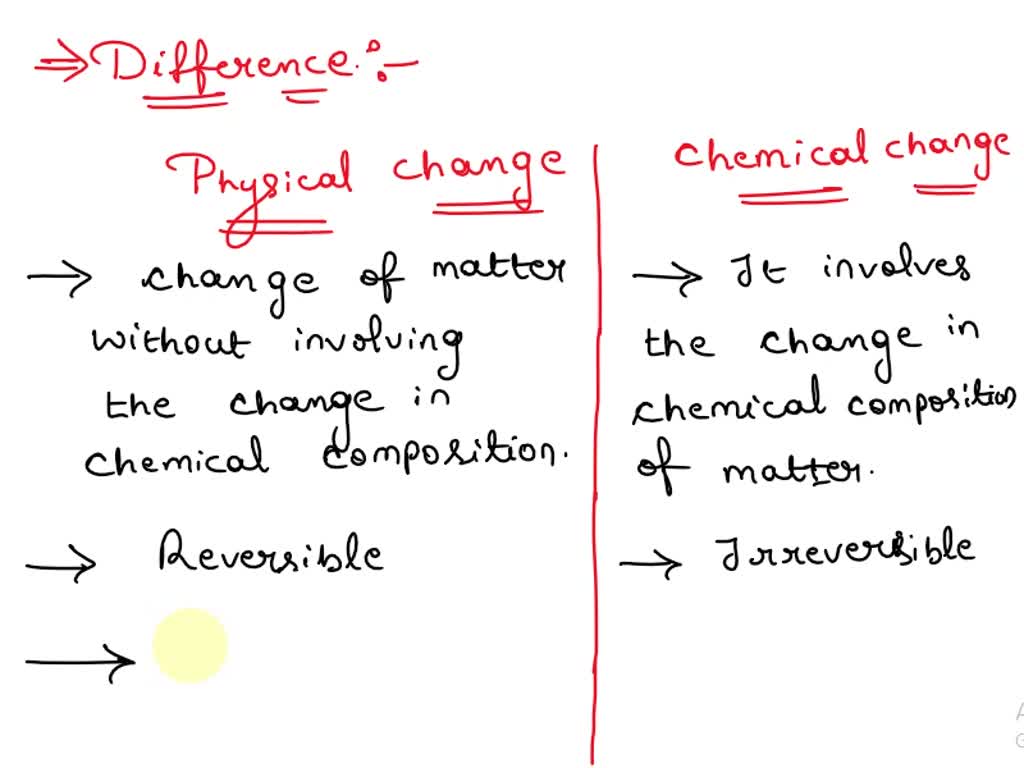 ⇒ Difference :-
Physical change
→ change of matter
without involving
the change in
chemical composition.
→ Reversible
→
chemical change
→ It involves
the change in
chemical composition
of matter.
→ Irreversible